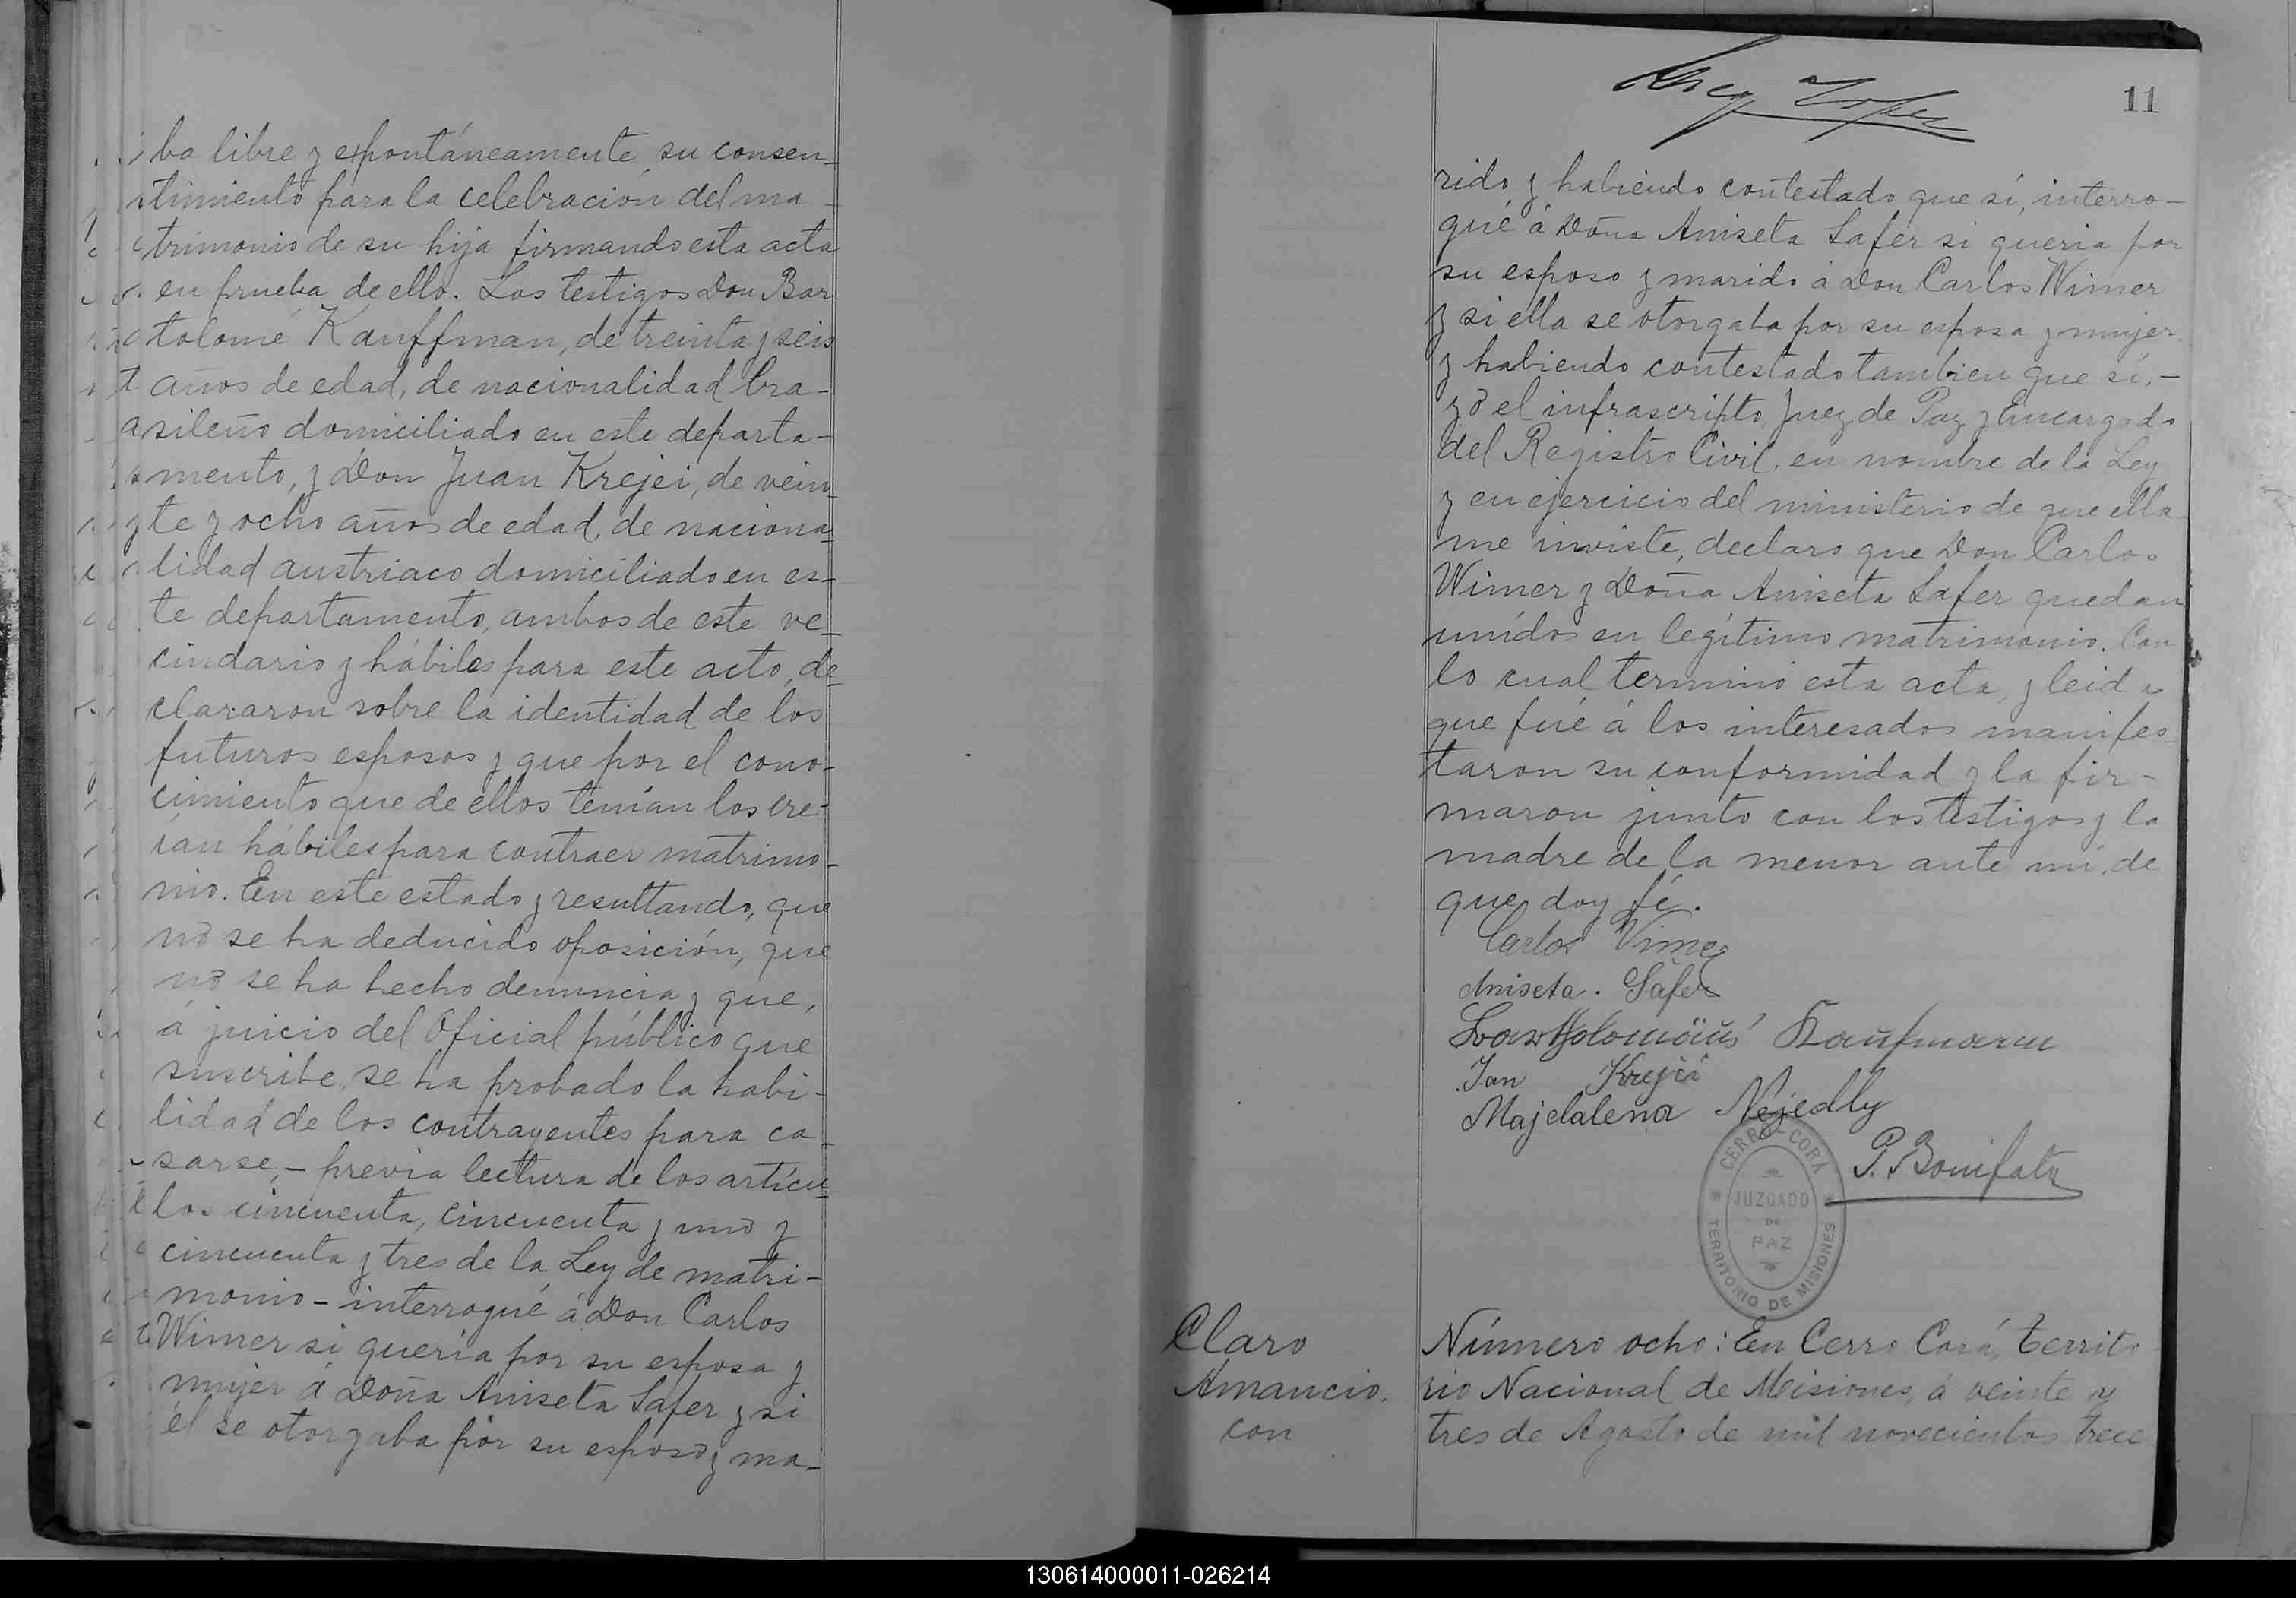 ba libre y expontáneamente su consen-
timiento para la celebración del ma-
trimonio de su hija firmando esta acta
en prueba de ello. Los testigos Don Bar
tolomé Kauffman, de treinta y seis
años de edad, de nacionalidad bra-
sileño domiciliado en este departa-
mento, y Don Juan Krejci, de vein-
te y ocho años de edad, de naciona-
lidad austriaco domiciliado en es-
te departamento, ambos de este ve-
cindario y hábiles para este acto, de-
clararon sobre la identidad de los
futuros esposos y que por el cono-
cimiento que de ellos tenían los cre-
ían hábiles para contraer matrimo-
nio. En este estado y resultando, que
no se ha deducido oposición, que
no se ha hecho denuncia y que,
á juicio del Oficial público que
suscribe, se ha probado la habi-
lidad de los contrayentes para ca-
sarse, - previa lectura de los artícu-
los cincuenta, cincuenta y uno y
cincuenta y tres de la Ley de matri-
monio - interrogué á Don Carlos
Wimer si quería por su esposa y
mujer á Doña Aniseta Safer y si
él se otorgaba por su esposo y ma-
11
rido y habiendo contestado que sí, interro-
gué á Doña Aniseta Safer si queria por
su esposo y marido á Don Carlos Wimer
y si ella se otorgaba por su esposa y mujer
y habiendo contestado tambien que sí, -
yo el infrascripto, Juez de Paz y Encargado
del Registro Civil, en nombre de la Ley
y en ejercicio del ministerio de que ella
me inviste, declaro que Don Carlos
Wimer y Doña Aniseta Safer quedan
unidos en legítimo matrimonio. Con
lo cual terminó esta acta, y leida
que fué á los interesados manifes-
taron su conformidad y la fir-
maron junto con los testigos y la
madre de la menor ante mi, de
que doy fé.
Carlos Vimer
Aniseta. Safer
Bartholomäus Kaufmann
Jan Krejci
Majdalena Nejedly
P. Bonifatz
CERRO-CORÁ
JUZGADO
DE
PAZ
TERRITORIO DE MISIONES
Claro
Amancio.
con
Número ocho: En Cerro Corá, territo
rio Nacional de Misiones, á veinte y
tres de Agosto de mil novecientos trece
130614000011-026214